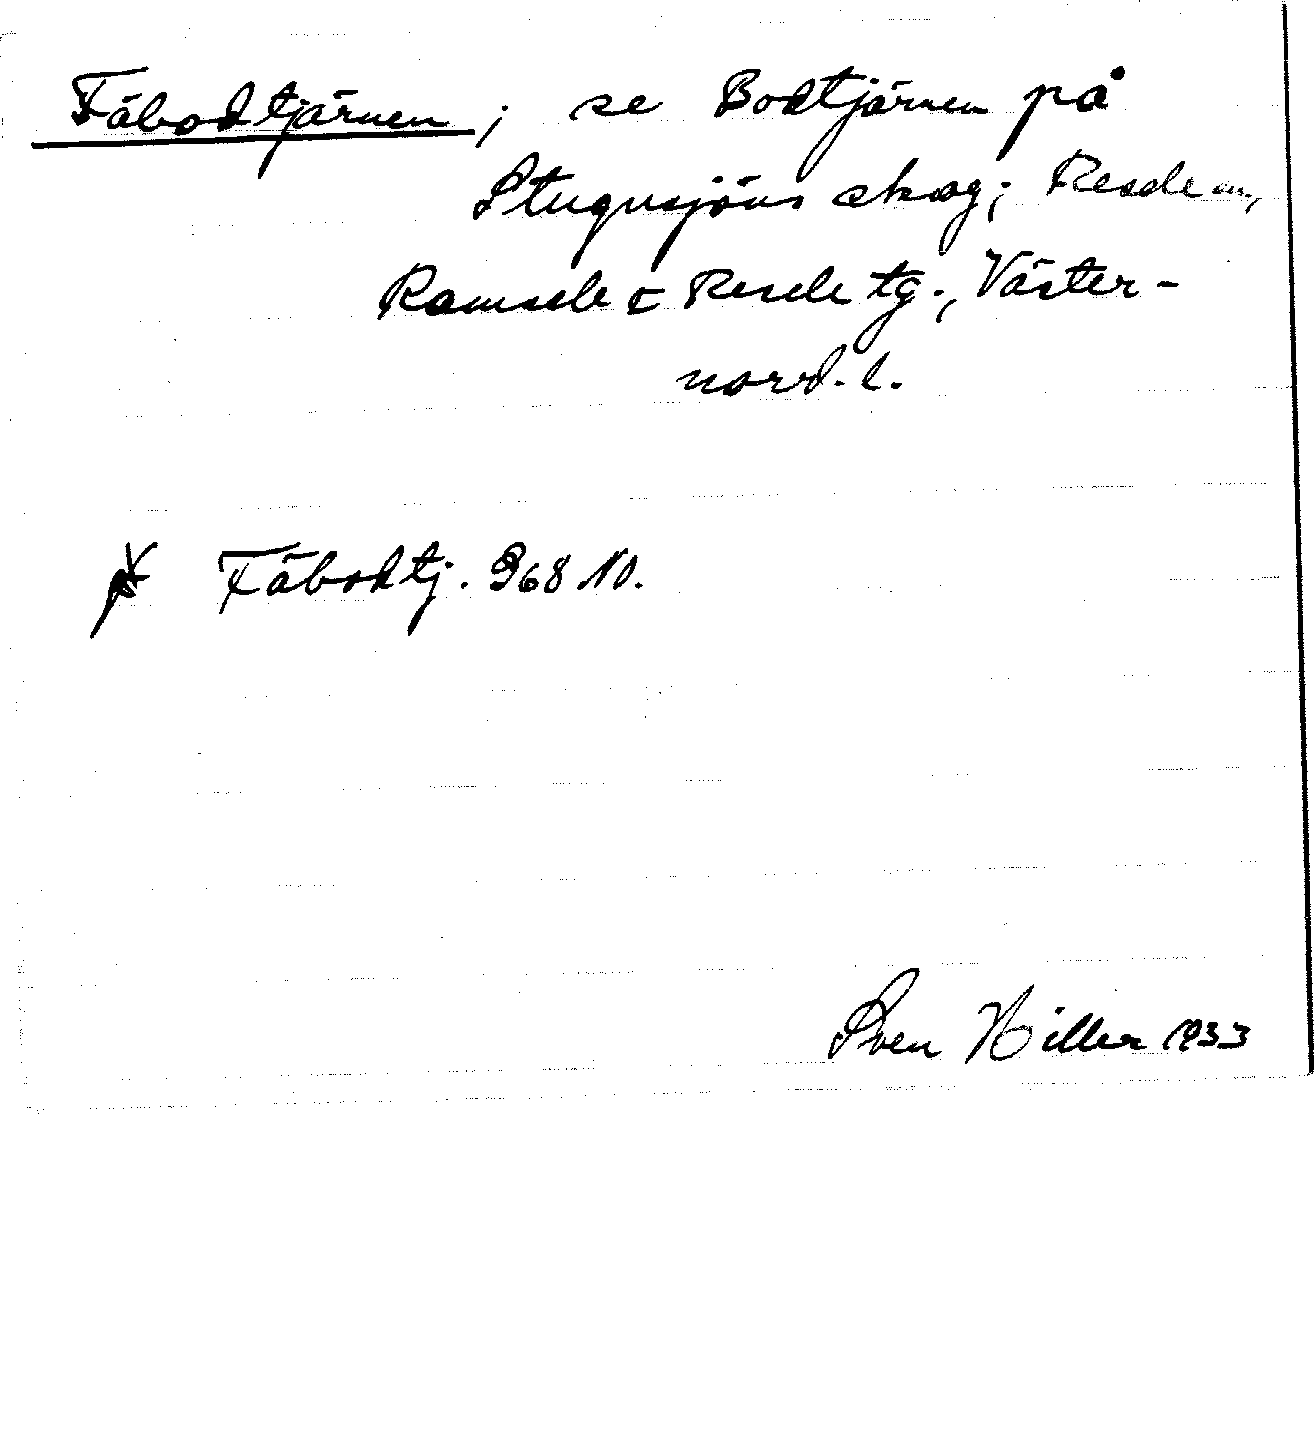 Fäbodtjärnen; se Bodtjärnen på
Stugusjöns skog; Resele sn,
Ramsele o Resele tg., Väster-
norrl. l.
Fäbodtj. 368 NO.
Sven Hiller 1933